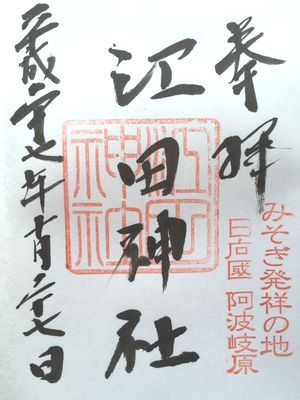 奉拝
みそぎ発祥の地
日向國 阿波岐原
江田神社
江田神社
平成二十七年十月二十七日